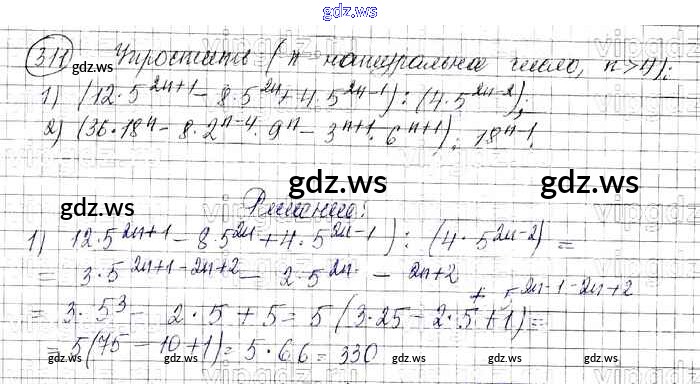 gdz.ws
311 Упростить (n натуральное число, n>4):
1) (12·5^{2n+1} - 8·5^{2n} + 4·5^{2n-1}) : (4·5^{2n-2});
2) (36·18^n - 8·2^{n-4}·9^n - 3^{n+1}·6^{n+1}) : 18^{n-1}.
Решение:
1) 12·5^{2n+1} - 8·5^{2n} + 4·5^{2n-1}) : (4·5^{2n-2}) =
= 3·5^{2n+1-2n+2} - 2·5^{2n - 2n+2} + 5^{2n-1-2n+2}
= 3·5^3 - 2·5 + 5 = 5(3·25 - 2·5 + 1) =
= 5(75 - 10 + 1) = 5·66 = 330
gdz.ws
gdz.ws
gdz.ws
gdz.ws
gdz.ws
gdz.ws
gdz.ws
gdz.ws